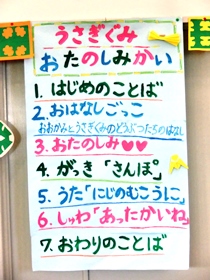 うさぎぐみ
おたのしみかい
1. はじめのことば
2. おはなしごっこ
おおかみとうさぎぐみのどうぶつたちのはなし
3. おたのしみ♡♡
4. がっき「さんぽ」
5. うた「にじのむこうに」
6. しゅわ「あったかいね」
7. おわりのことば